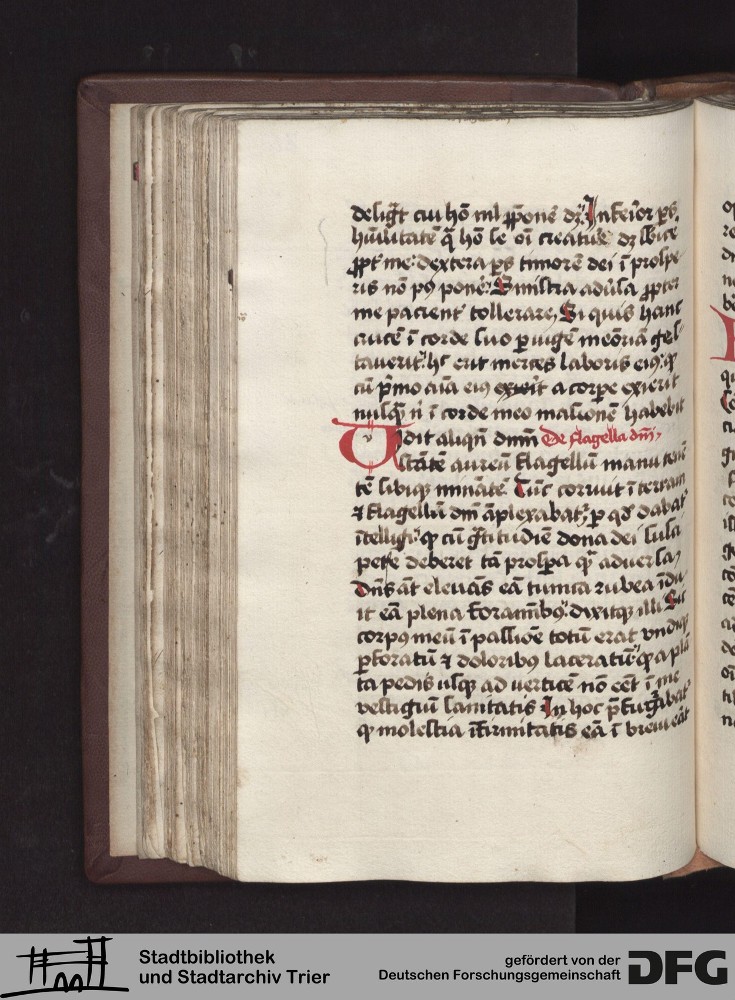 deligit̄ cui hō nil p̄ponē dꝫ. Inferior ps
hūilitatē q̄ hō se oī creature dꝫ sbicē
ppt̄ me: dextera ps timorē dei ī prospe
ris nō pꝰ ponē: Sinistra adūsa ppter
me pacient̄ tollerare, Si quis hanc
crucē ī corde suo p iugē meōriā gest
tauerit: hͨ erit merces laboris eiꝰ: qͥ
cū p̄mo aīa eiꝰ exierit a corpe exierit
nusq̄ nͥ ī corde meo māsionē habebit
Vidit aliqn̄ dnm̄ De flagella dnī,
Astātē aureū flagellū manu tenē
tē sibiqꝫ minātē Tūc corruit ī terram
⁊ flagellū dnī āplexabat᷑: p qd̕ dabat᷑
ītelligi: qꝫ cū gͣtitudīe dona dei susci
pere deberet tā prospa qͣ aduersa,
Dn̄s āt eleuās eā tunica rubea īdu
it eā plena foramībꝰ: dixitqꝫ illi Sic
corpꝰ meū ī passiōe totū erat vndiqꝫ
pforatū ⁊ doloribꝰ laceratū: qꝫ a plā
ta pedis usqꝫ ad verticē nō eēt ī me
vestigiū sanitatis In hoc p̄figͣbat᷑
qꝫ molestia īfirmitatis eā ī breui eāt
Stadtbibliothek
und Stadtarchiv Trier
gefördert von der
Deutschen Forschungsgemeinschaft
DFG